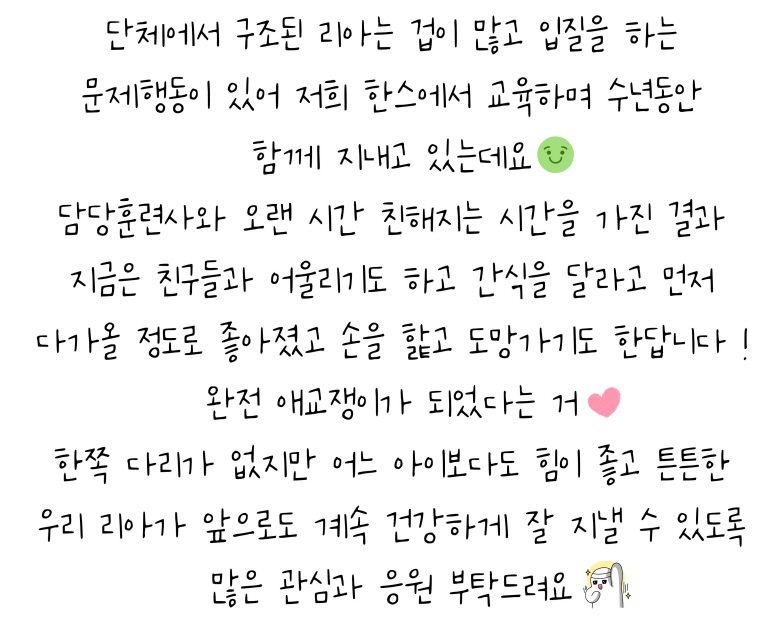 단체에서 구조된 리아는 겁이 많고 입질을 하는
문제행동이 있어 저희 한스에서 교육하며 수년동안
함께 지내고 있는데요
담당훈련사와 오랜 시간 친해지는 시간을 가진 결과
지금은 친구들과 어울리기도 하고 간식을 달라고 먼저
다가올 정도로 좋아졌고 손을 핥고 도망가기도 한답니다 !
완전 애교쟁이가 되었다는 거
한쪽 다리가 없지만 어느 아이보다도 힘이 좋고 튼튼한
우리 리아가 앞으로도 계속 건강하게 잘 지낼 수 있도록
많은 관심과 응원 부탁드려요